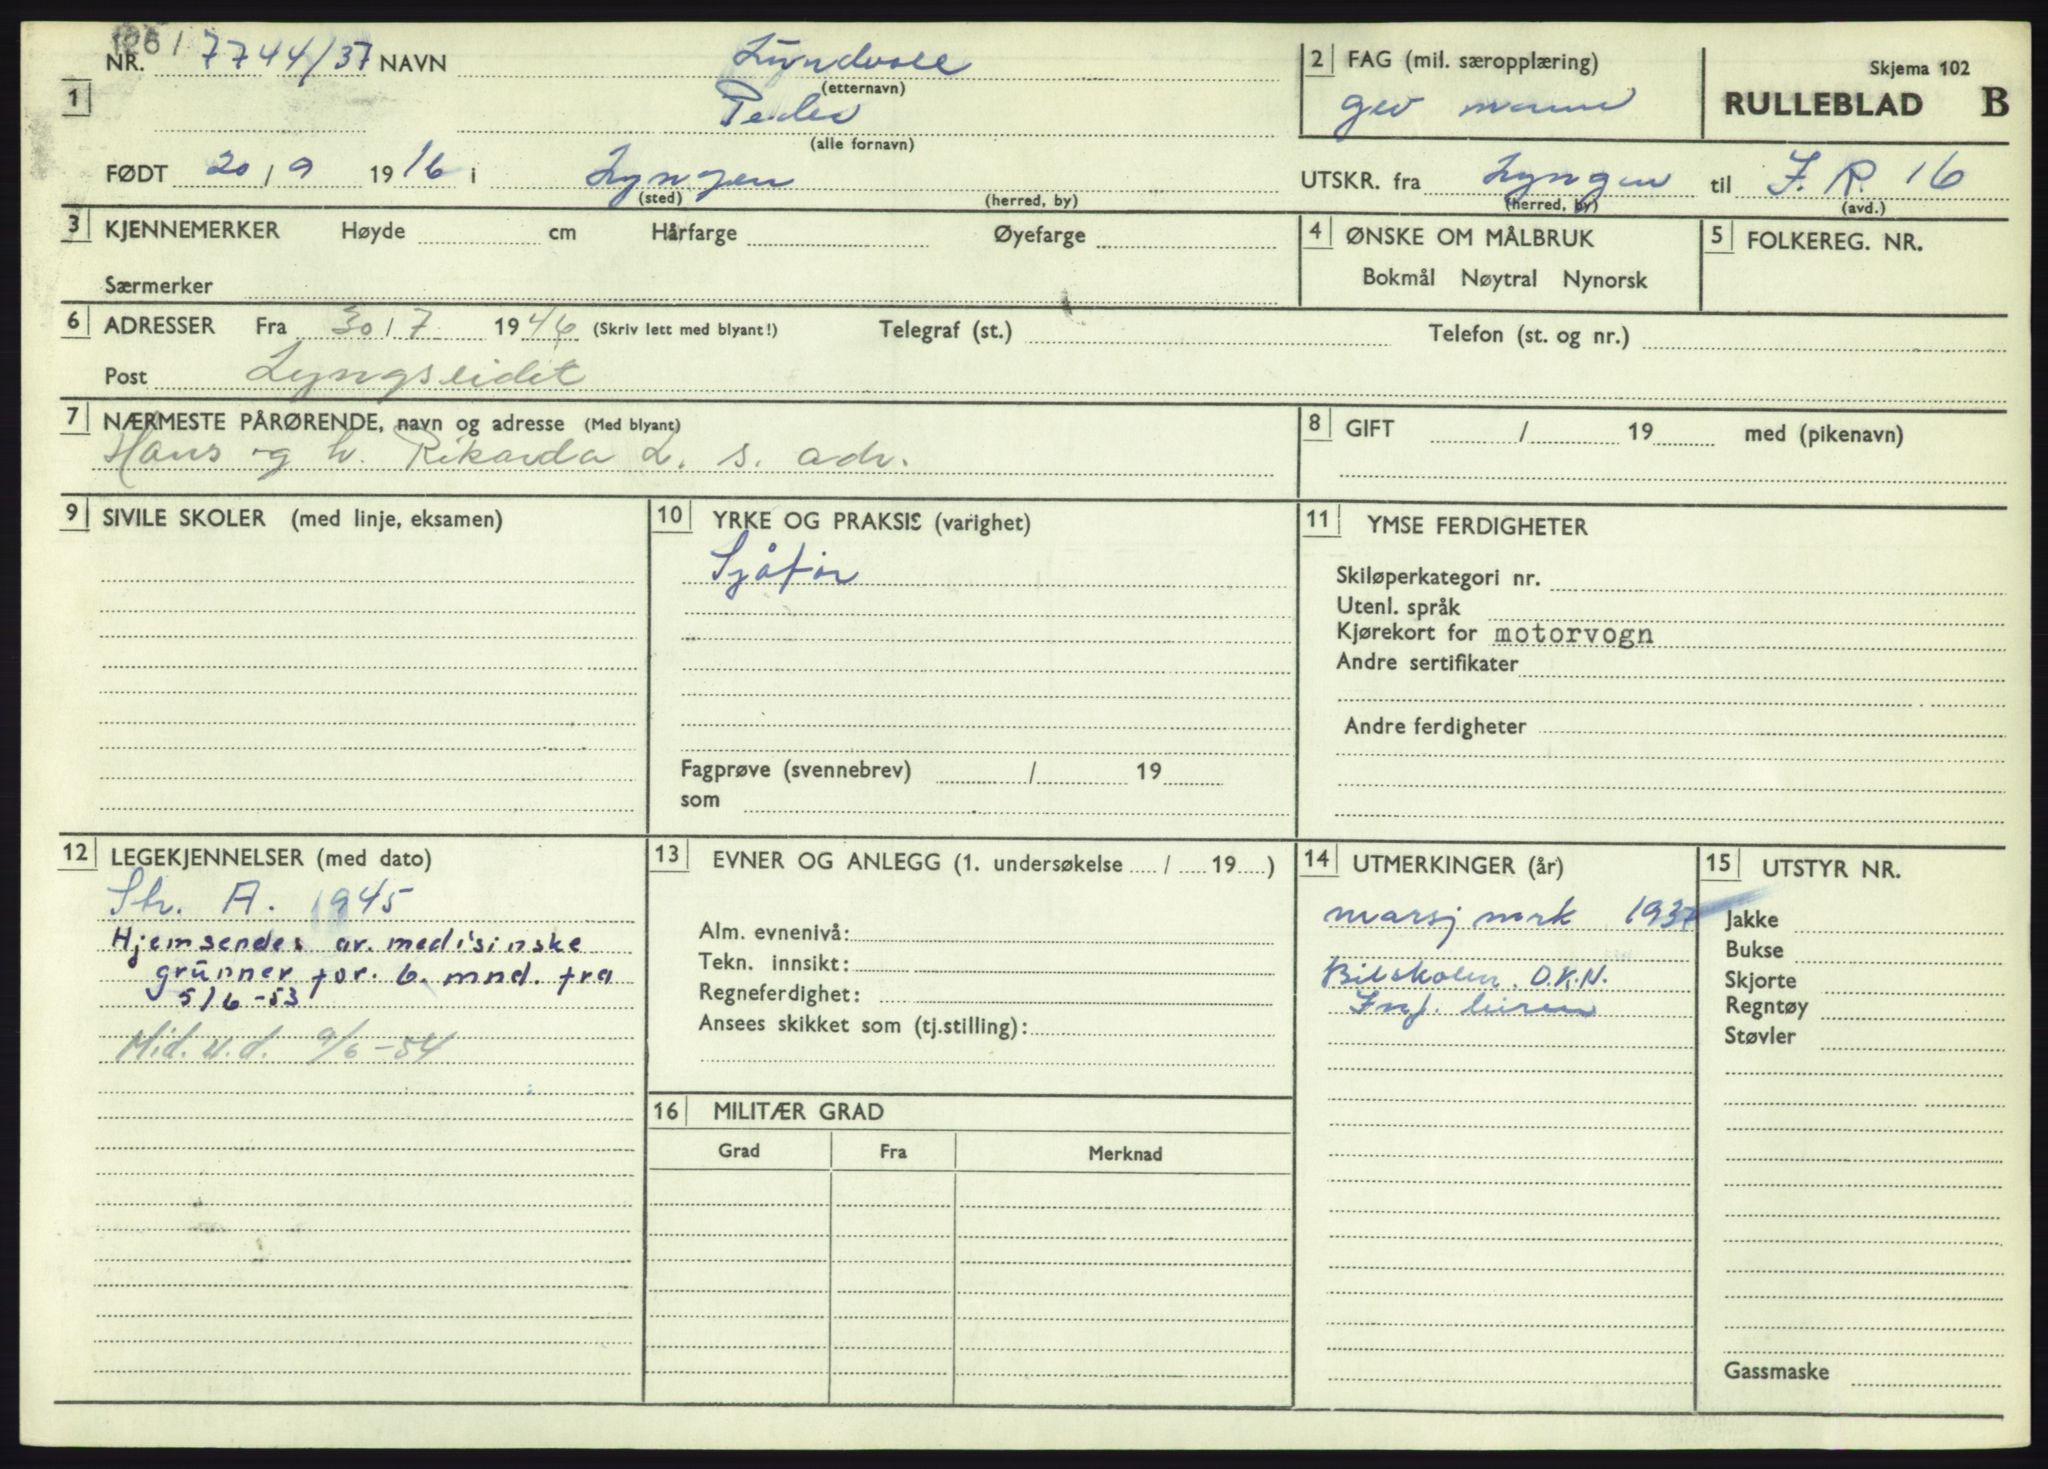 NR. 7744/37 NAVN Lyndvoll
(etternavn)
2 FAG (mil. særopplæring)
Skjema 102
1
Peder
(alle fornavn)
gev mann
RULLEBLAD B
FØDT 20/9 1916 i Lyngen
(sted) (herred, by)
UTSKR. fra Lyngen til J.R. 16
(herred, by) (avd.)
3 KJENNEMERKER Høyde cm Hårfarge Øyefarge
Særmerker
4 ØNSKE OM MÅLBRUK
Bokmål Nøytral Nynorsk
5 FOLKEREG. NR.
6 ADRESSER Fra 30/7 1946 (Skriv lett med blyant!) Telegraf (st.) Telefon (st. og nr.)
Post Lyngseidet
7 NÆRMESTE PÅRØRENDE, navn og adresse (Med blyant)
Hans og h. Rikarda L. s. adr.
8 GIFT / 19 med (pikenavn)
9 SIVILE SKOLER (med linje, eksamen)
10 YRKE OG PRAKSIS (varighet)
Sjåfør
Fagprøve (svennebrev) / 19
som
11 YMSE FERDIGHETER
Skiløperkategori nr.
Utenl. språk
Kjørekort for motorvogn
Andre sertifikater
Andre ferdigheter
12 LEGEKJENNELSER (med dato)
Str. A. 1945
Hjemsendes av medisinske
grunner for 6. mnd. fra
5/6-53
Mid. u.d. 9/6-54
13 EVNER OG ANLEGG (1. undersøkelse / 19 )
Alm. evnenivå:
Tekn. innsikt:
Regneferdighet:
Ansees skikket som (tj.stilling):
14 UTMERKINGER (år)
marsj merk 1937
Bilskolen. D.K.N.
15 UTSTYR NR.
Jakke
Bukse
Skjorte
Regntøy
Støvler
Gassmaske
16 MILITÆR GRAD
Grad Fra Merknad